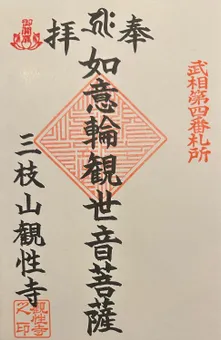 武相第四番札所
奉拝
如意輪観世音菩薩
三枝山観性寺
御開扉
観性寺之印